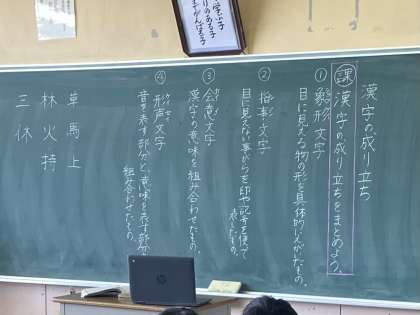 漢字の成り立ち
課 漢字の成り立ちをまとめよう。
① 象形文字
目に見える物の形を具体的にえがいたもの。
② 指事文字
目に見えない事がらを印や記号を使って
表したもの。
③ 会意文字
漢字の意味を組み合わせたもの。
④ 形声文字
音を表す部分と意味を表す部分を
組み合わせたもの。
草 馬 上
林 火 持
三 休